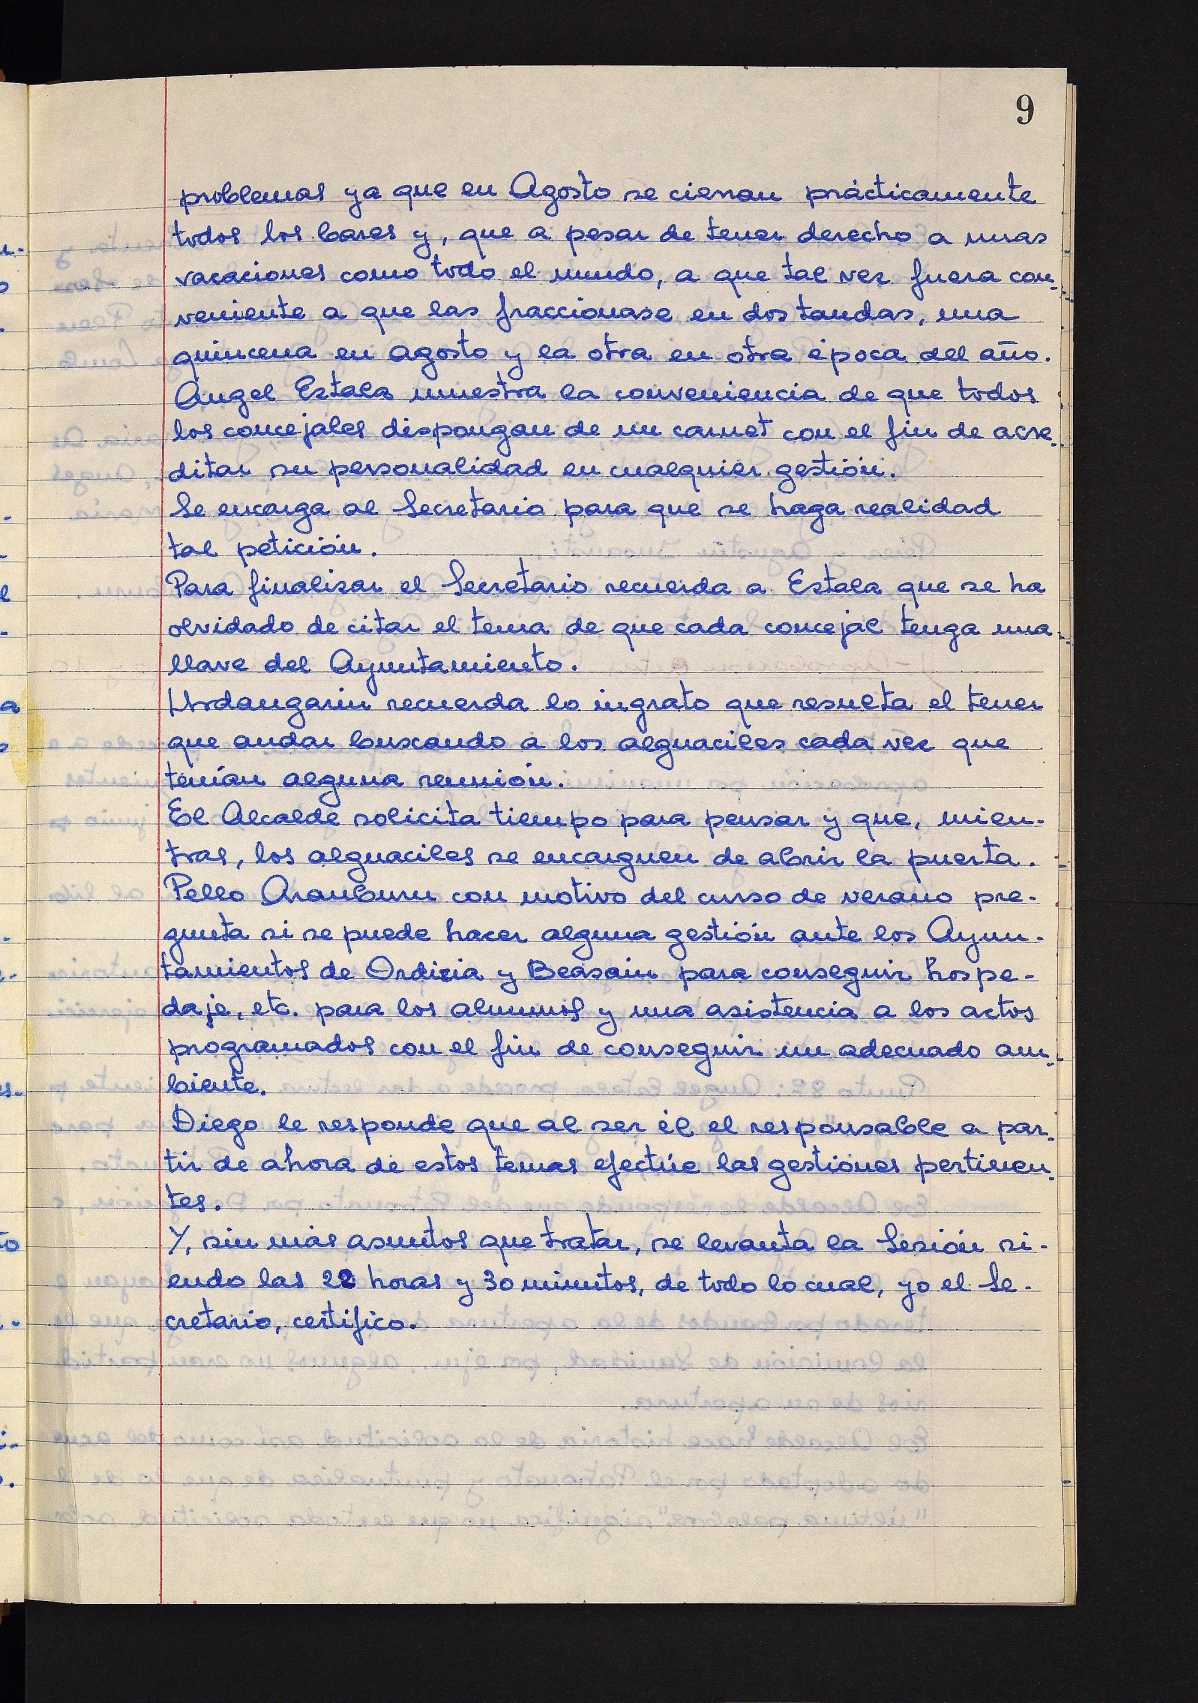 9
problemas ya que en Agosto se cierran prácticamente
todos los bares y, que a pesar de tener derecho a unas
vacaciones como todo el mundo, a que tal vez fuera con-
veniente a que las fraccionase en dos tandas, una
quincena en agosto y la otra en otra época del año.
Angel Estala muestra la conveniencia de que todos
los concejales dispongan de un carnet con el fin de acre-
ditar su personalidad en cualquier gestión.
Se encarga al Secretario para que se haga realidad
tal petición.
Para finalizar el Secretario recuerda a Estala que se ha
olvidado de citar el tema de que cada concejal tenga una
llave del Ayuntamiento.
Urdangarin recuerda lo ingrato que resulta el tener
que andar buscando a los alguaciles cada vez que
tenían alguna reunión.
El Alcalde solicita tiempo para pensar y que, mien-
tras, los alguaciles se encarguen de abrir la puerta.
Pello Aramburu con motivo del curso de verano pre-
gunta si se puede hacer alguna gestión ante los Ayun-
tamientos de Ordizia y Beasain para conseguir hospe-
daje, etc. para los alumnos y una asistencia a los actos
programados con el fin de conseguir un adecuado am-
biente.
Diego le responde que al ser él el responsable a par-
tir de ahora de estos temas efectúe las gestiones pertinen-
tes.
Y, sin más asuntos que tratar, se levanta la Sesión si-
endo las 22 horas y 30 minutos, de todo lo cual, yo el Se-
cretario, certifico.